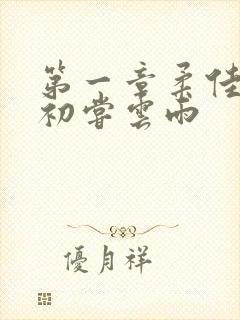 第一章柔佳
初嘗雲雨
優月祥